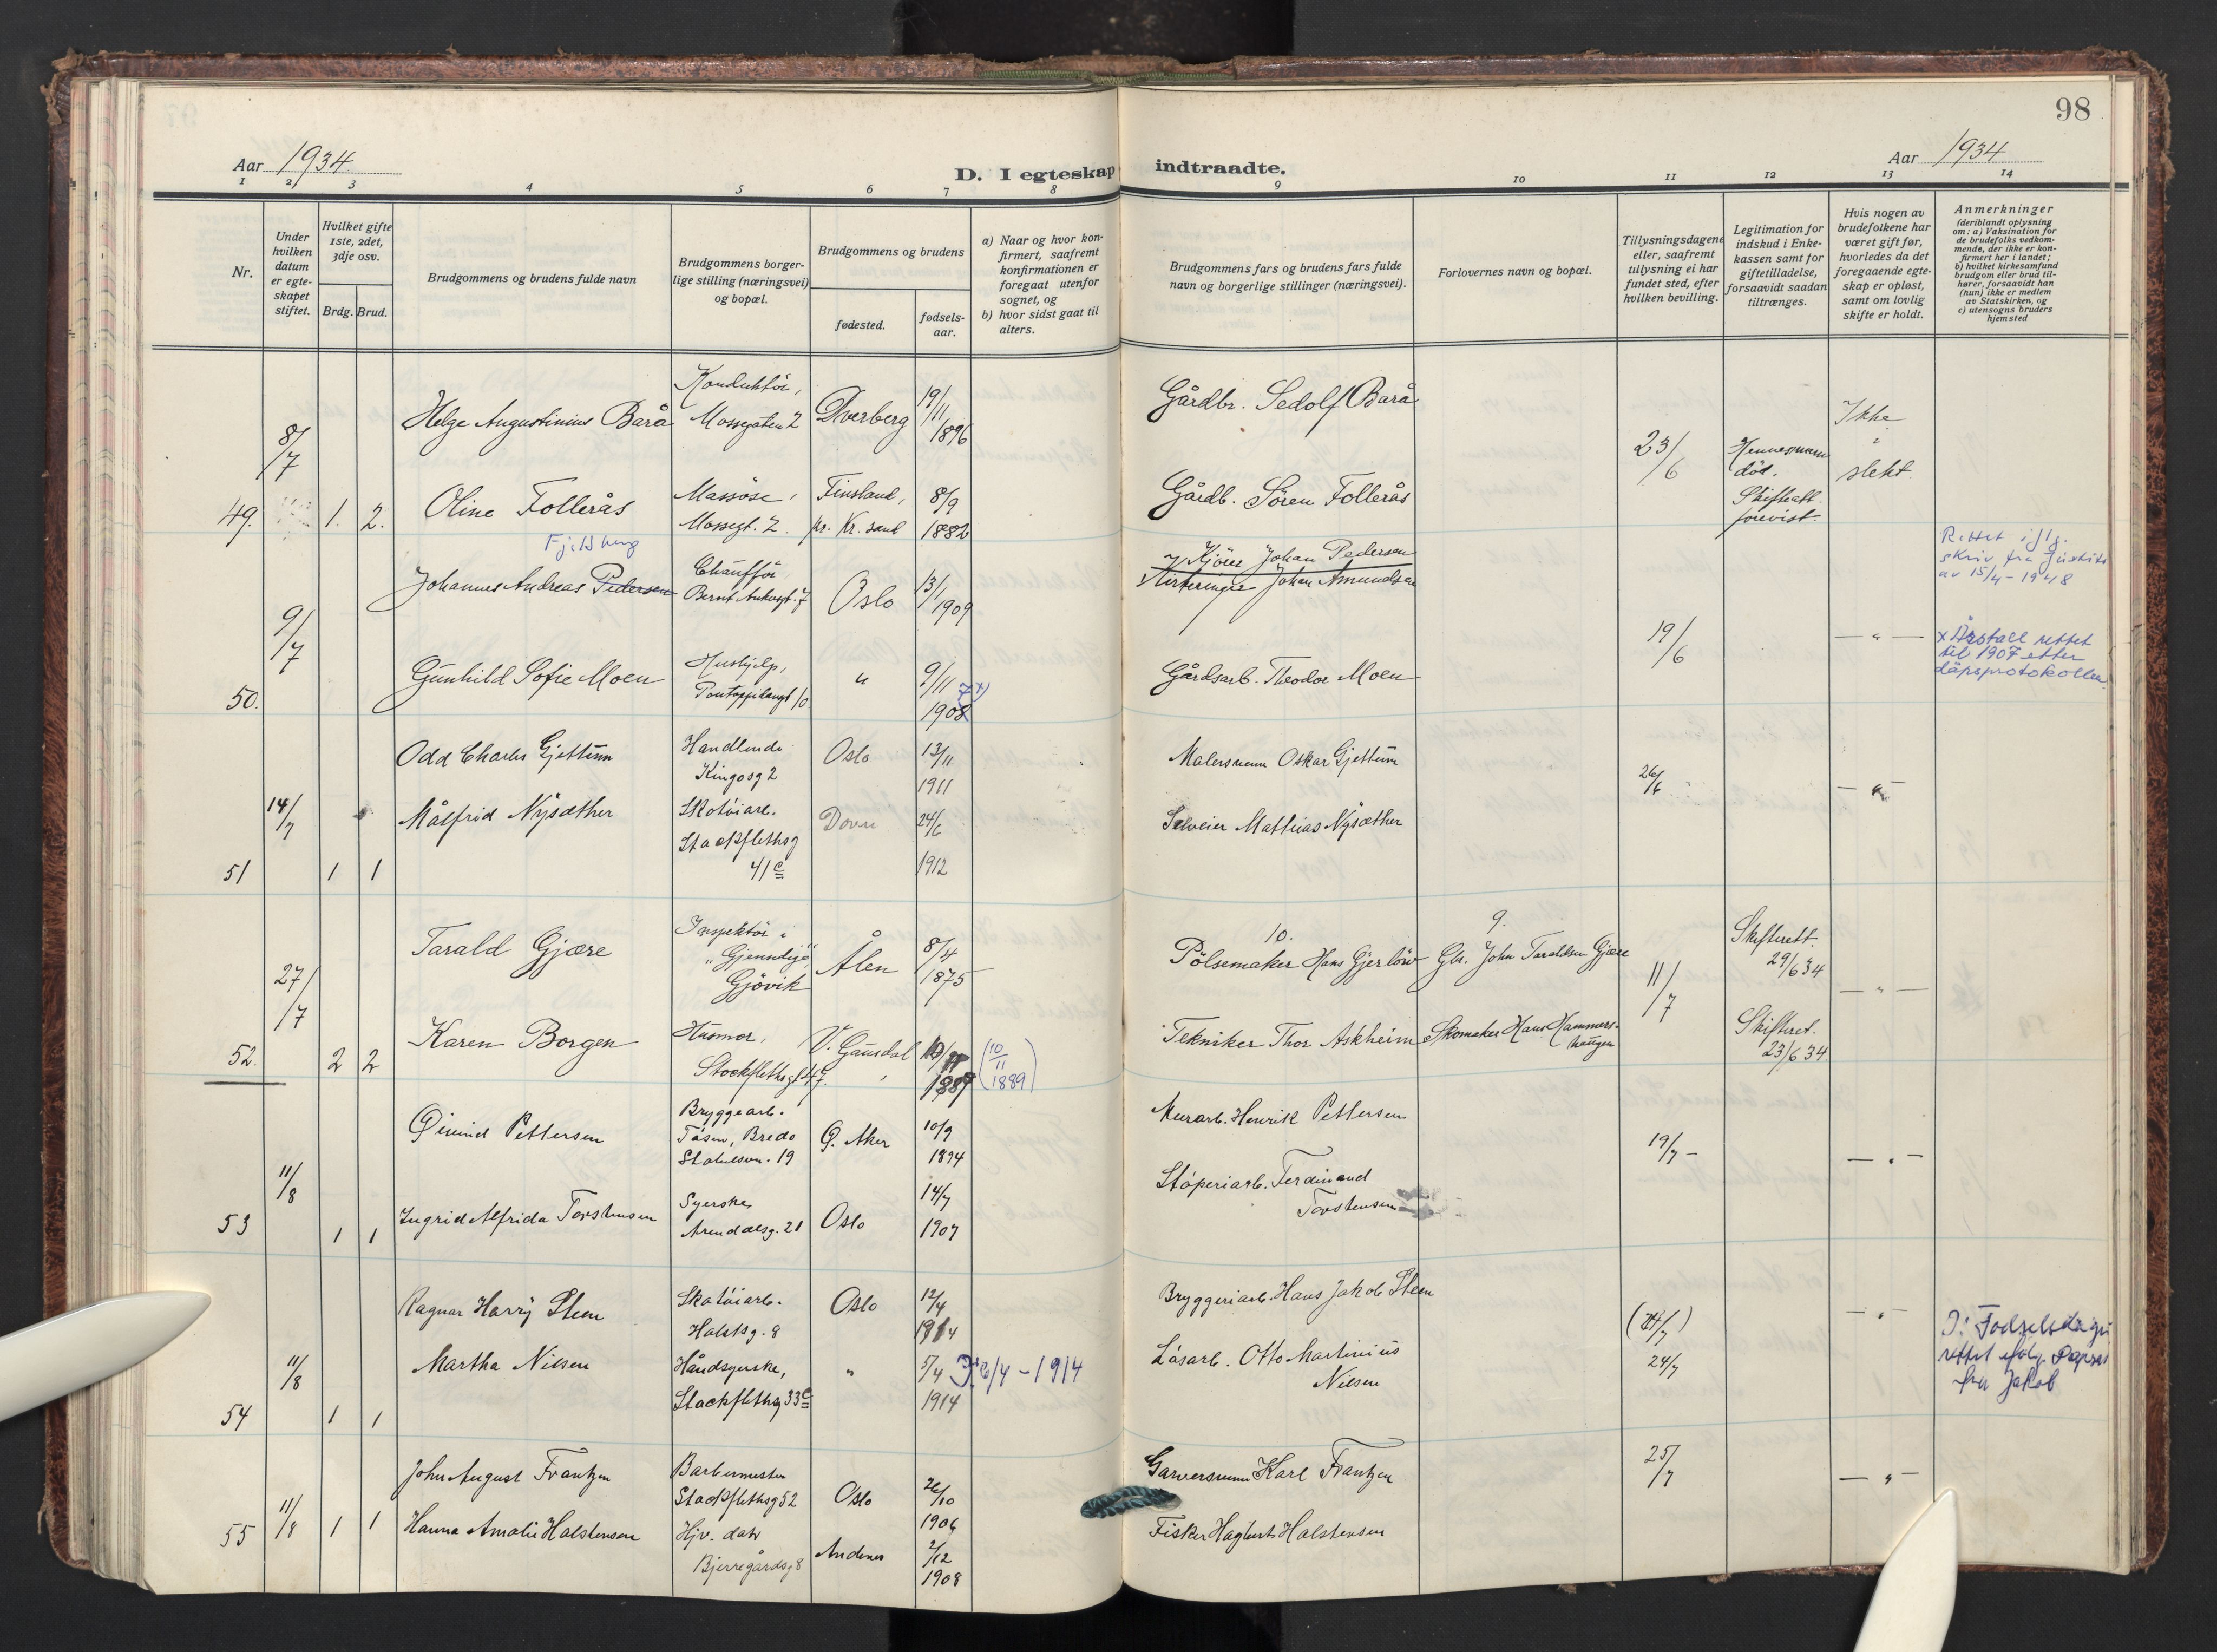 98
Aar 1934.
D. I egteskap indtraadte.
Aar 1934
1 2 3 4 5 6 7 8 9 10 11 12 13 14
Nr.
Under
hvilken
datum
er egte-
skapet
stiftet.
Hvilket gifte
1ste, 2det,
3dje osv.
Brdg. Brud.
Brudgommens og brudens fulde navn
Brudgommens borger-
lige stilling (næringsvei)
og bopæl.
Brudgommens og brudens
fødested.
fødsels-
aar.
a) Naar og hvor kon-
firmert, saafremt
konfirmationen er
foregaat utenfor
sognet, og
b) hvor sidst gaat til
alters.
Brudgommens fars og brudens fars fulde
navn og borgerlige stillinger (næringsvei).
Forlovernes navn og bopæl.
Tillysningsdagene
eller, saafremt
tillysning ei har
fundet sted, efter
hvilken bevilling.
Legitimation for
indskud i Enke-
kassen samt for
giftetilladelse,
forsaavidt saadan
tiltrænges.
Hvis nogen av
brudefolkene har
været gift før,
hvorledes da det
foregaaende egte-
skap er opløst,
samt om lovlig
skifte er holdt.
Anmerkninger
(deriblandt oplysning
om: a) Vaksination for
de brudefolks vedkom-
mende, der ikke er kon-
firmert her i landet;
b) hvilket kirkesamfund
brudgom eller brud til-
hører, forsaavidt han
(hun) ikke er medlem
av Statskirken, og
c) utensogns bruders
hjemsted
49. 8/7 1. 2.
Helge Augustinius Barå
Konduktör,
Mossegaten 2
Dverberg
19/11
1896
Gårdbr. Sedolf Barå
Oline Follerås
Massöse,
Mossegt. 2.
Finsland,
pr. Kr. sand
8/9
1882
Gårdb. Sören Follerås
23/6
Hennes mann
död.
Skifteatt.
forevist.
Ikke
i
slekt.
50. 9/7
Fjeldberg
Johannes Andreas Pedersen
Chaufför
Bernt Ankersgt. 7
Oslo
13/1
1909
Kjörer Johan Pedersen
Johan Amundsen
Rettet iflg.
skriv fra Justits
av 15/4-1948
Gunhild Sofie Moen
Hushjelp,
Pontoppidansgt 10
"
9/11
1908 7 x)
Gårdsarb. Theodor Moen
19/6
— " —
x Årstall rettet
til 1907 etter
dåpsprotokollen.
51 14/7 1 1
Odd Charles Gjettum
Handlende
Kingosg 2
Oslo
13/11
1911
Malersvenn Oskar Gjettum
Målfrid Nysæther
Skotöiarb.
Stockflethsg
41c
Dovre
24/6
1912
Selveier Mathias Nysæther
26/6
— " —
52. 27/7 2 2
Tarald Gjære
Inspektör i
"Gjensidige"
Gjövik
Ålen
8/4
1875
10.
Pölsemaker Hans Gjerlöw
9.
Gbr. John Taraldsen Gjære
11/7
Skifterett.
29/6 34
— " —
Karen Borgen
Husmor,
Stockflethsgt 47.
V. Gausdal
10/11
1889
(10/11 1889)
Tekniker Thor Askheim
Skomaker Hans Hammers-
haugen
Skifteret.
23/6 34.
53 11/8 1 1
Öivind Pettersen
Bryggearb.
Tåsen, Bredo
Stabelsv. 19
Ö. Aker
10/9
1894
Murarb. Henrik Pettersen
19/7 -
— " —
Ingrid Alfrida Torstensen
Syerske,
Arendalsg. 21
Oslo
14/7
1907
Stöperiarb. Ferdinand
Torstensen
54 11/8 1 1
Ragnar Harry Steen
Skotöiarb.
Holstsg. 8
Oslo
12/4
1914
Bryggeriarb. Hans Jakob Steen
(24/7)
— " —
Martha Nilsen
Håndsyerske,
Stockflethsg 33c
"
5/4
1914
6/4 - 1914
Låsarb. Otto Martinius
Nilsen
24/7
Fødselsdagen
rettet ifølge
fra Jakob
55 11/8 1 1
John August Frantzen
Barbermester
Stockflethsg 52
Oslo
26/10
1906
Garversvenn Karl Frantzen
25/7
— " —
Hanna Amalie Halstensen
Hjv. datr
Bjerregårdsg 8
Andenes
2/12
1908
Fisker Hagbart Halstensen